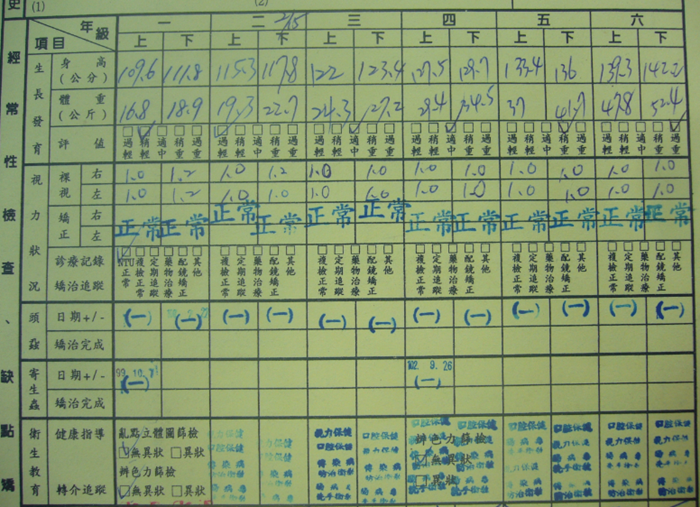 史 (1) (2)
年級 一 二 2/15 三 四 五 六
項目 上 下 上 下 上 下 上 下 上 下 上 下
經常性檢查、缺點矯
生長發育
身高(公分) 109.6 111.8 115.3 117.8 122 123.4 127.5 129.7 133.4 136 139.3 142.2
體重(公斤) 16.8 18.9 19.3 22.7 24.3 27.2 29.4 34.5 37 41.7 47.8 52.4
評值 □過輕 □稍輕 □適中 □稍重 □過重 □過輕 □稍輕 □適中 □稍重 □過重 □過輕 □稍輕 □適中 □稍重 □過重 □過輕 □稍輕 □適中 □稍重 □過重 □過輕 □稍輕 □適中 □稍重 □過重 □過輕 □稍輕 □適中 □稍重 □過重
視力狀況
裸視 右 1.0 1.2 1.0 1.2 1.0 1.0 1.0 1.0 1.0 1.0 1.0 1.0
左 1.0 1.2 1.0 1.0 1.0 1.0 1.0 1.0 1.0 1.0 1.0 1.0
矯正 右
左
正常 正常 正常 正常 正常 正常 正常 正常 正常 正常 正常 正常
診療記錄
矯治追蹤
NTU正常 □複檢正常 □定期追蹤 □藥物治療 □配鏡矯正 □其他
□複檢正常 □定期追蹤 □藥物治療 □配鏡矯正 □其他
□複檢正常 □定期追蹤 □藥物治療 □配鏡矯正 □其他
□複檢正常 □定期追蹤 □藥物治療 □配鏡矯正 □其他
□複檢正常 □定期追蹤 □藥物治療 □配鏡矯正 □其他
□複檢正常 □定期追蹤 □藥物治療 □配鏡矯正 □其他
頭蝨
日期+/- (一) (一) (一) (一) (一) (一) (一) (一) (一) (一) (一) (一)
矯治完成
寄生蟲
日期+/- (一) 102. 9. 26 (一)
矯治完成
衛生教育
健康指導
亂點立體圖篩檢
□無異狀 □異狀
辨色力篩檢
□無異狀 □異狀
轉介追蹤
視力保健
口腔保健
傳染病
防治衛教
洗手衛教
辨色力篩檢
無異狀
□異狀